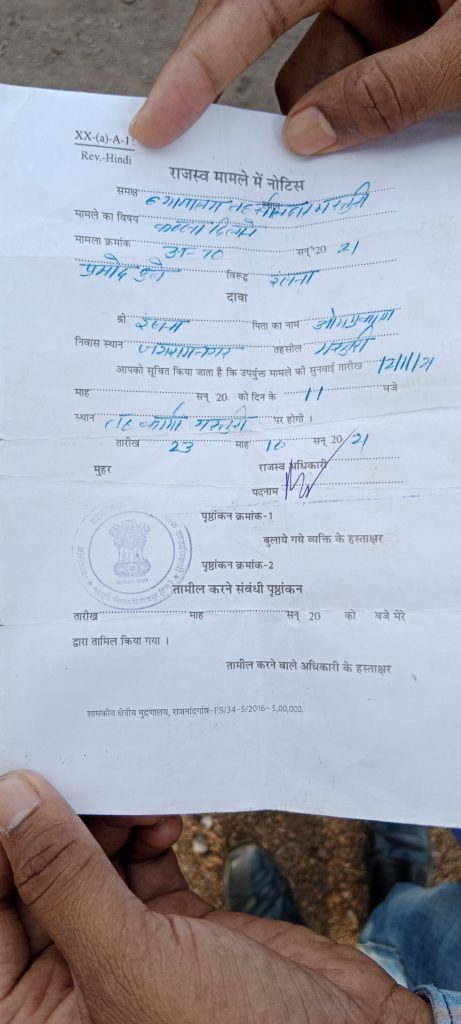 XX-(a)-A-1
Rev.-Hindi
राजस्व मामले में नोटिस
समक्ष न्यायालय तहसीलदार मस्तुरी
मामले का विषय कब्जा दिलाने
मामला क्रमांक अ-70 सन् 20 21
प्रमोद विरूद्ध
दावा
श्री पिता का नाम ओमप्रकाश
निवास स्थान जयरामनगर तहसील मस्तुरी
आपको सूचित किया जाता है कि उपर्युक्त मामले की सुनवाई तारीख 12/11/21
माह सन् 20 को दिन के 11 बजे
स्थान तह. मस्तुरी पर होगी ।
तारीख 23 माह 10 सन् 20 21
मुहर राजस्व अधिकारी
पदनाम
पृष्ठांकन क्रमांक-1
बुलाये गये व्यक्ति के हस्ताक्षर
पृष्ठांकन क्रमांक-2
तामील करने संबंधी पृष्ठांकन
तारीख माह सन् 20 को बजे मेरे
द्वारा तामिल किया गया ।
तामील करने वाले अधिकारी के हस्ताक्षर
शासकीय क्षेत्रीय मुद्रणालय, राजनांदगांव-FS/34-5/2016- 5,00,000.